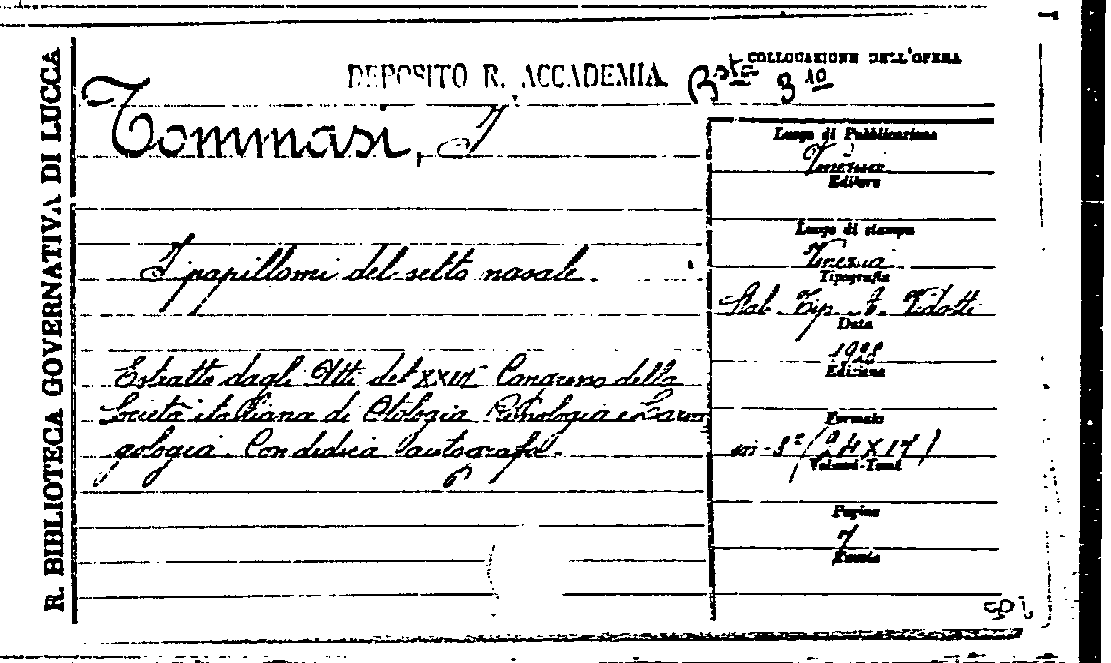 R. BIBLIOTECA GOVERNATIVA DI LUCCA
DEPOSITO R. ACCADEMIA
COLLOCAZIONE DELL'OPERA
Bsta 3 10
Tommasi, I
I papillomi del setto nasale.
Estratto dagli Atti del XXIV Congresso della
Società italiana di Otologia Rinologia e Larin
gologia. Con dedica autografa.
Luogo di Pubblicazione
Venezia
Editore
Luogo di stampa
Venezia
Tipografia
Stab. Tip. Vidotti
Data
1928
Edizione
Formato
in-8º (24 X 17)
Volumi-Tomi
Pagine
7